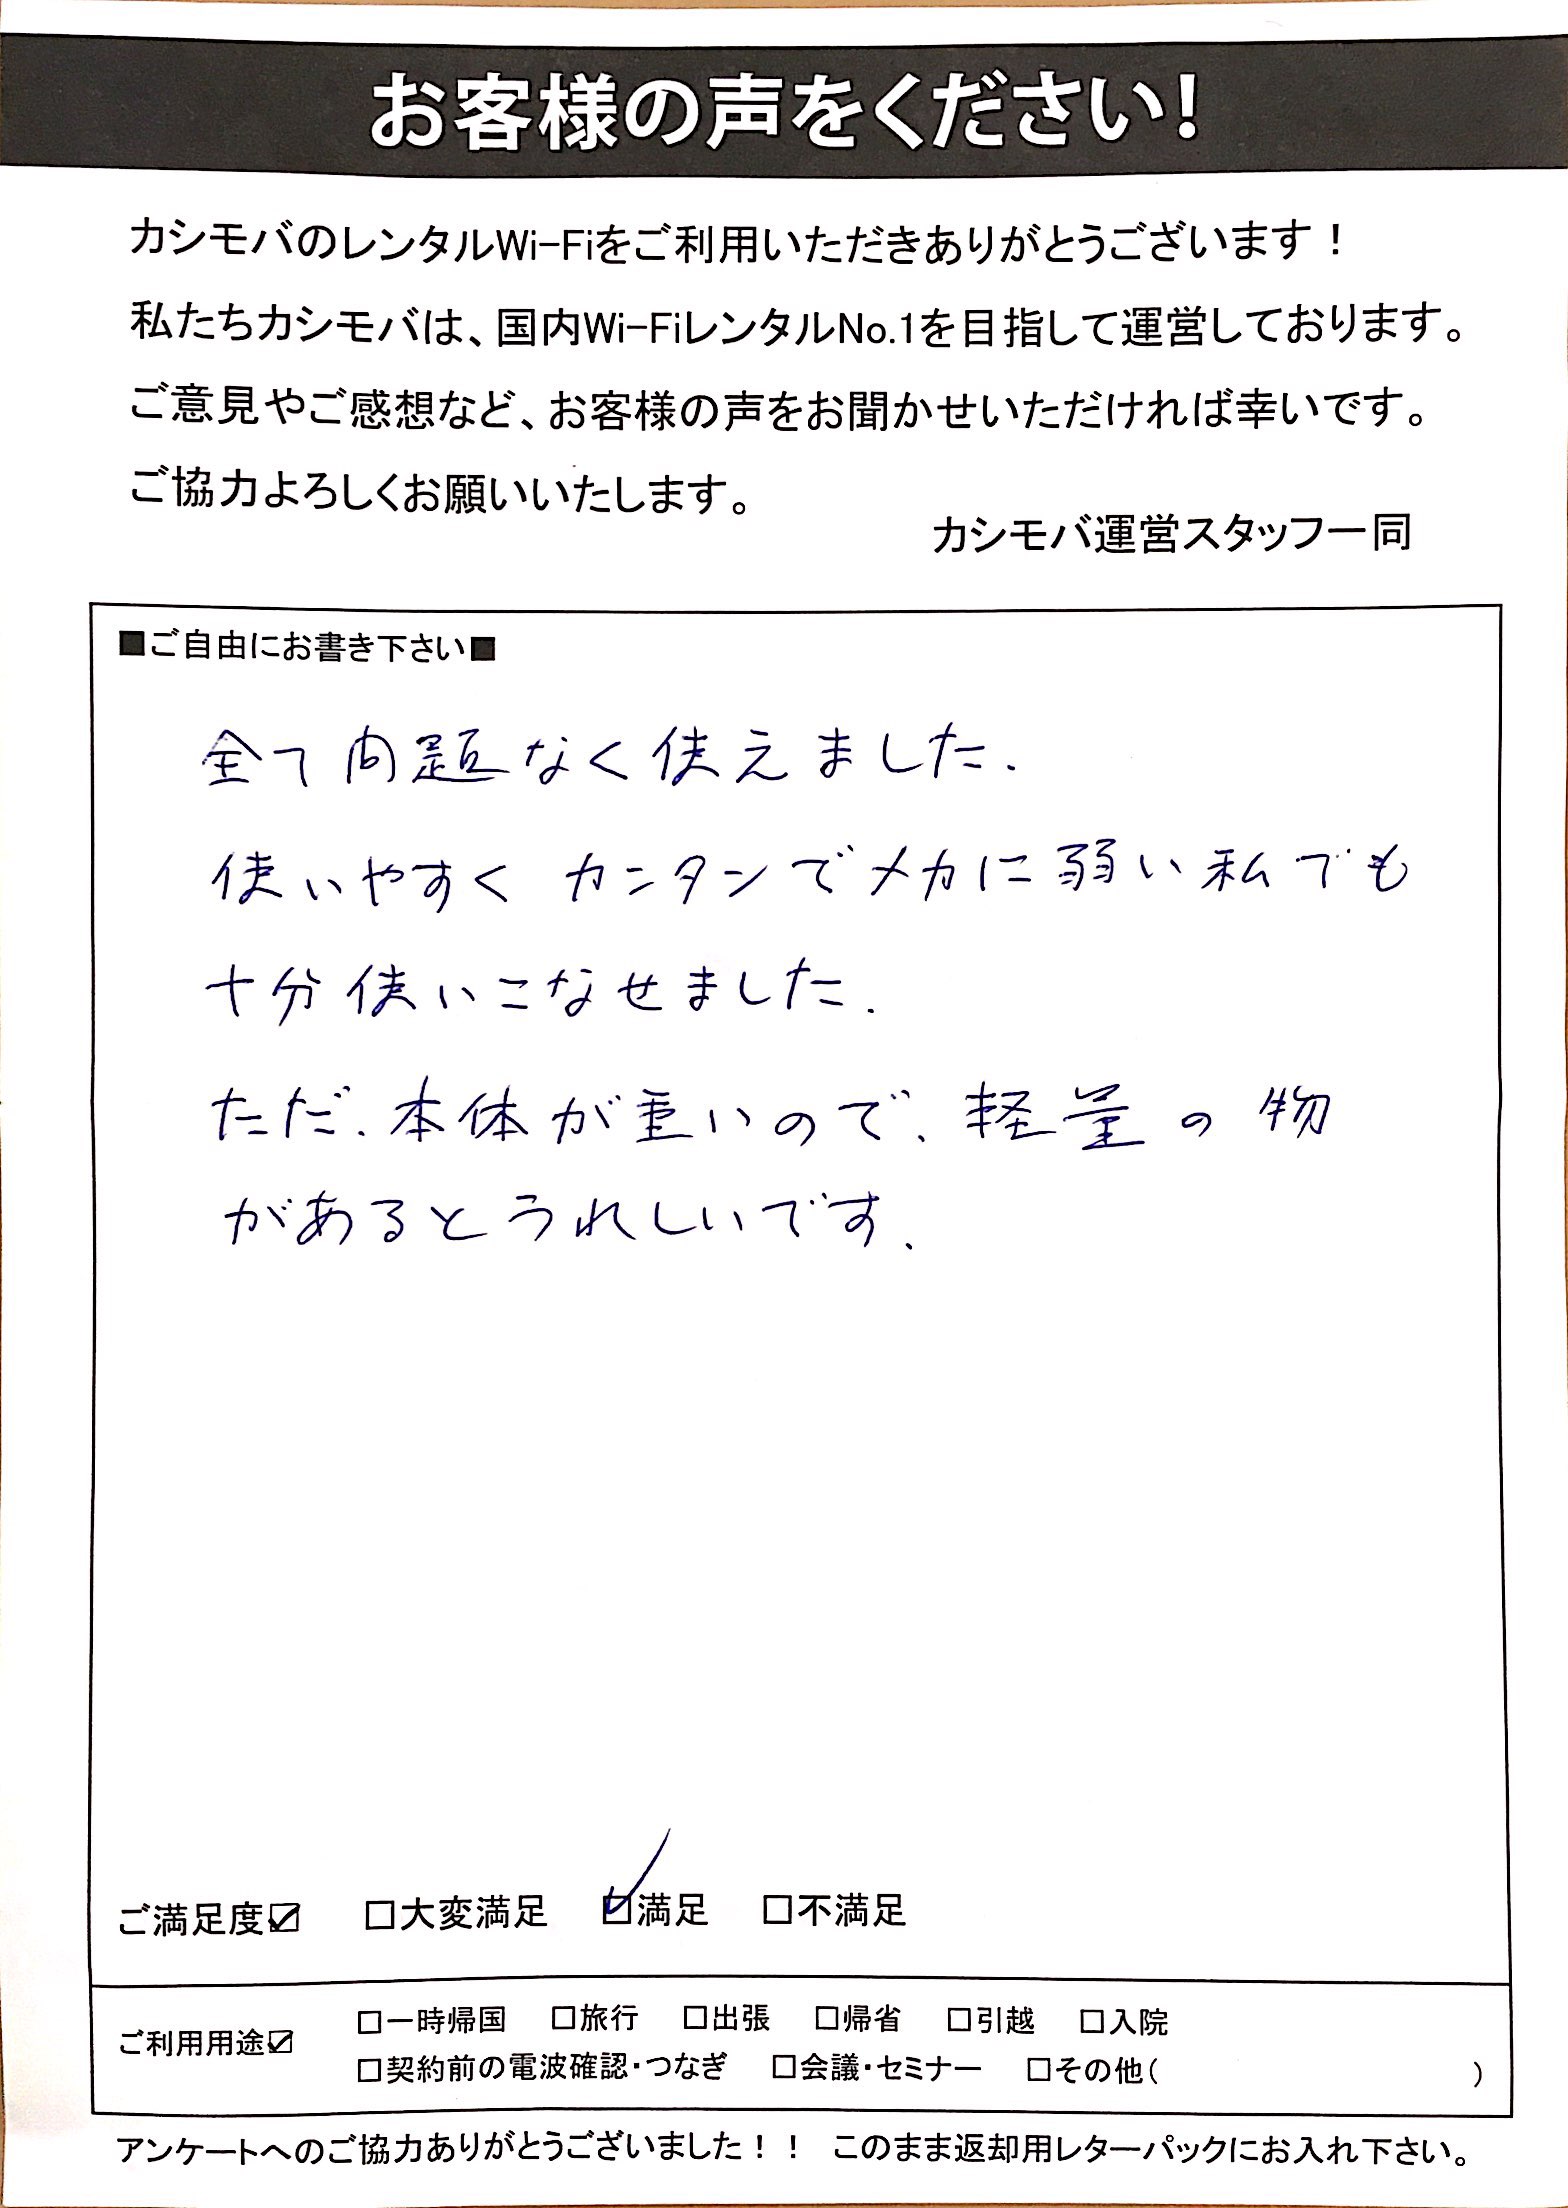 お客様の声をください!
カシモバのレンタルWi-Fiをご利用いただきありがとうございます！
私たちカシモバは、国内Wi-FiレンタルNo.1を目指して運営しております。
ご意見やご感想など、お客様の声をお聞かせいただければ幸いです。
ご協力よろしくお願いいたします。
カシモバ運営スタッフ一同
■ご自由にお書き下さい■
全て問題なく使えました.
使いやすく カンタンでメカに弱い私でも
十分使いこなせました.
ただ.本体が重いので、軽量の物
があるとうれしいです.
ご満足度☑ □大変満足 ☑満足 □不満足
ご利用用途☑ □一時帰国 □旅行 □出張 □帰省 □引越 □入院
□契約前の電波確認・つなぎ □会議・セミナー □その他( )
アンケートへのご協力ありがとうございました！！ このまま返却用レターパックにお入れ下さい。